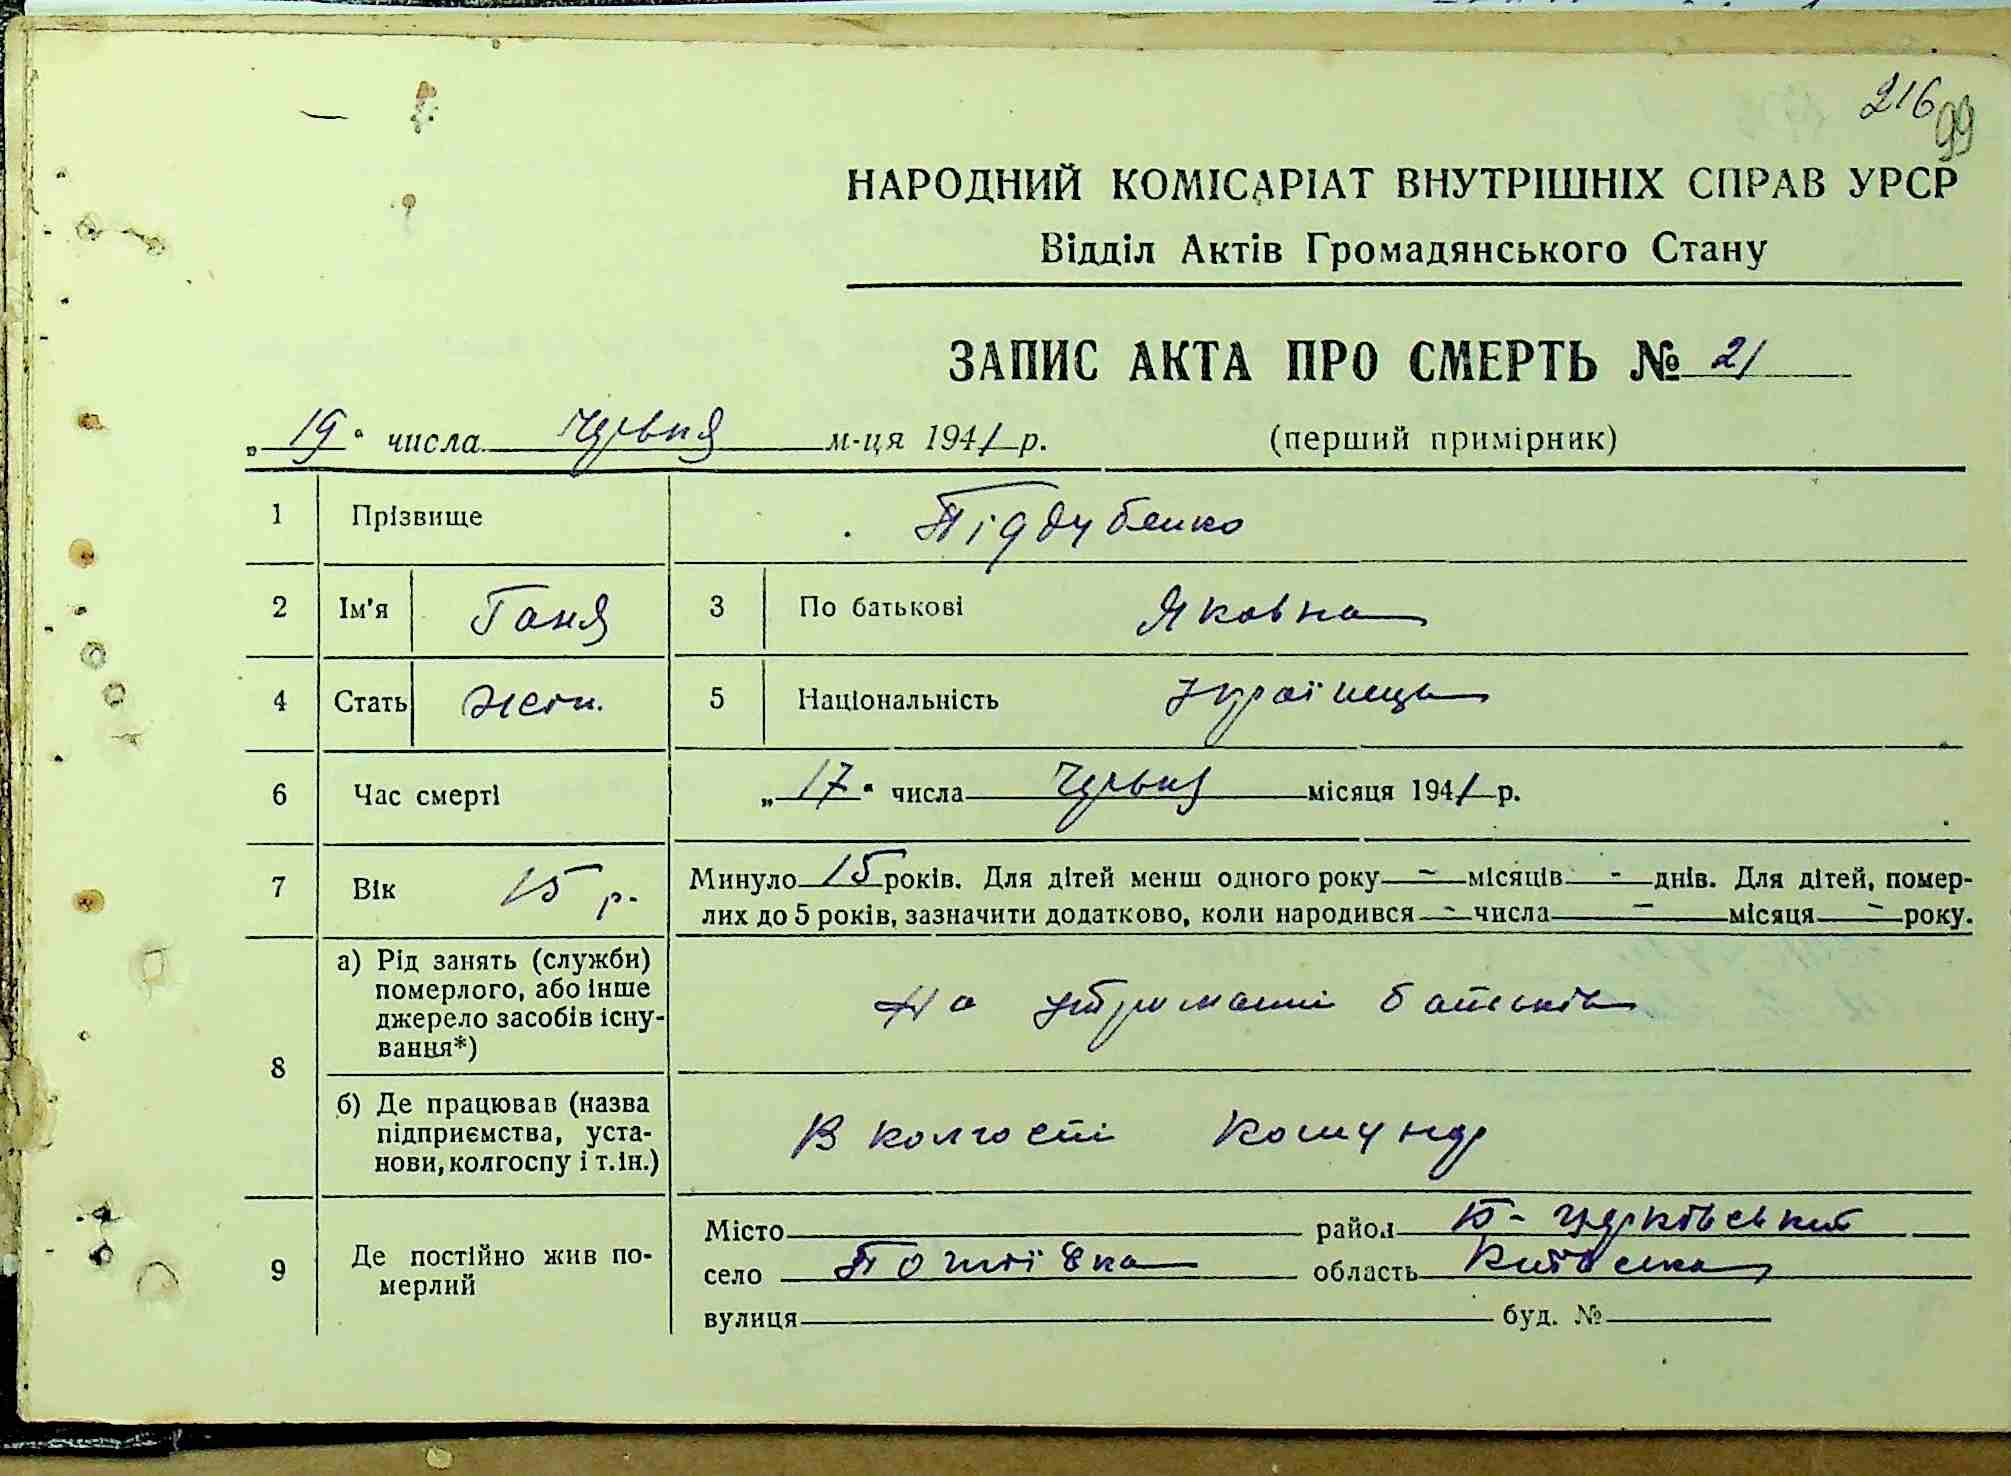 216
99
НАРОДНИЙ КОМІСАРІАТ ВНУТРІШНІХ СПРАВ УРСР
Відділ Актів Громадянського Стану
ЗАПИС АКТА ПРО СМЕРТЬ № 21
„19“ числа червня м-ця 1941 р. (перший примірник)
1 Прізвище Піддубенко
2 Ім'я Ганя 3 По батькові Яковна
4 Стать жен. 5 Національність Українець
6 Час смерті „17“ числа червня місяця 1941 р.
7 Вік 15 р. Минуло 15 років. Для дітей менш одного року - місяців - днів. Для дітей, помер-
лих до 5 років, зазначити додатково, коли народився - числа - місяця - року.
8 а) Рід занять (служби)
померлого, або інше
джерело засобів існу-
вання*)
На утриманні батьків
б) Де працював (назва
підприємства, уста-
нови, колгоспу і т.ін.)
В колгоспі Комунар
9 Де постійно жив по-
мерлий
Місто район Б-Церківський
село область Київська
вулиця буд. №